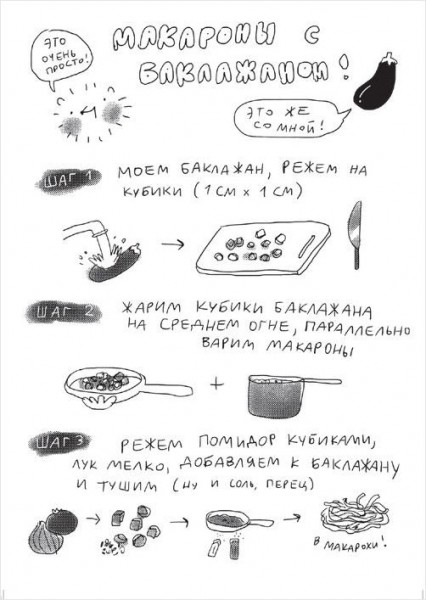 ЭТО
ОЧЕНЬ
ПРОСТО!
МАКАРОНЫ С
БАКЛАЖАНОМ!
ЭТО ЖЕ
СО МНОЙ!
ШАГ 1
МОЕМ БАКЛАЖАН, РЕЖЕМ НА
КУБИКИ (1 СМ х 1 СМ)
ШАГ 2
ЖАРИМ КУБИКИ БАКЛАЖАНА
НА СРЕДНЕМ ОГНЕ, ПАРАЛЛЕЛЬНО
ВАРИМ МАКАРОНЫ
+
ШАГ 3
РЕЖЕМ ПОМИДОР КУБИКАМИ,
ЛУК МЕЛКО, ДОБАВЛЯЕМ К БАКЛАЖАНУ
И ТУШИМ (НУ И СОЛЬ, ПЕРЕЦ)
В МАКАРОХИ!